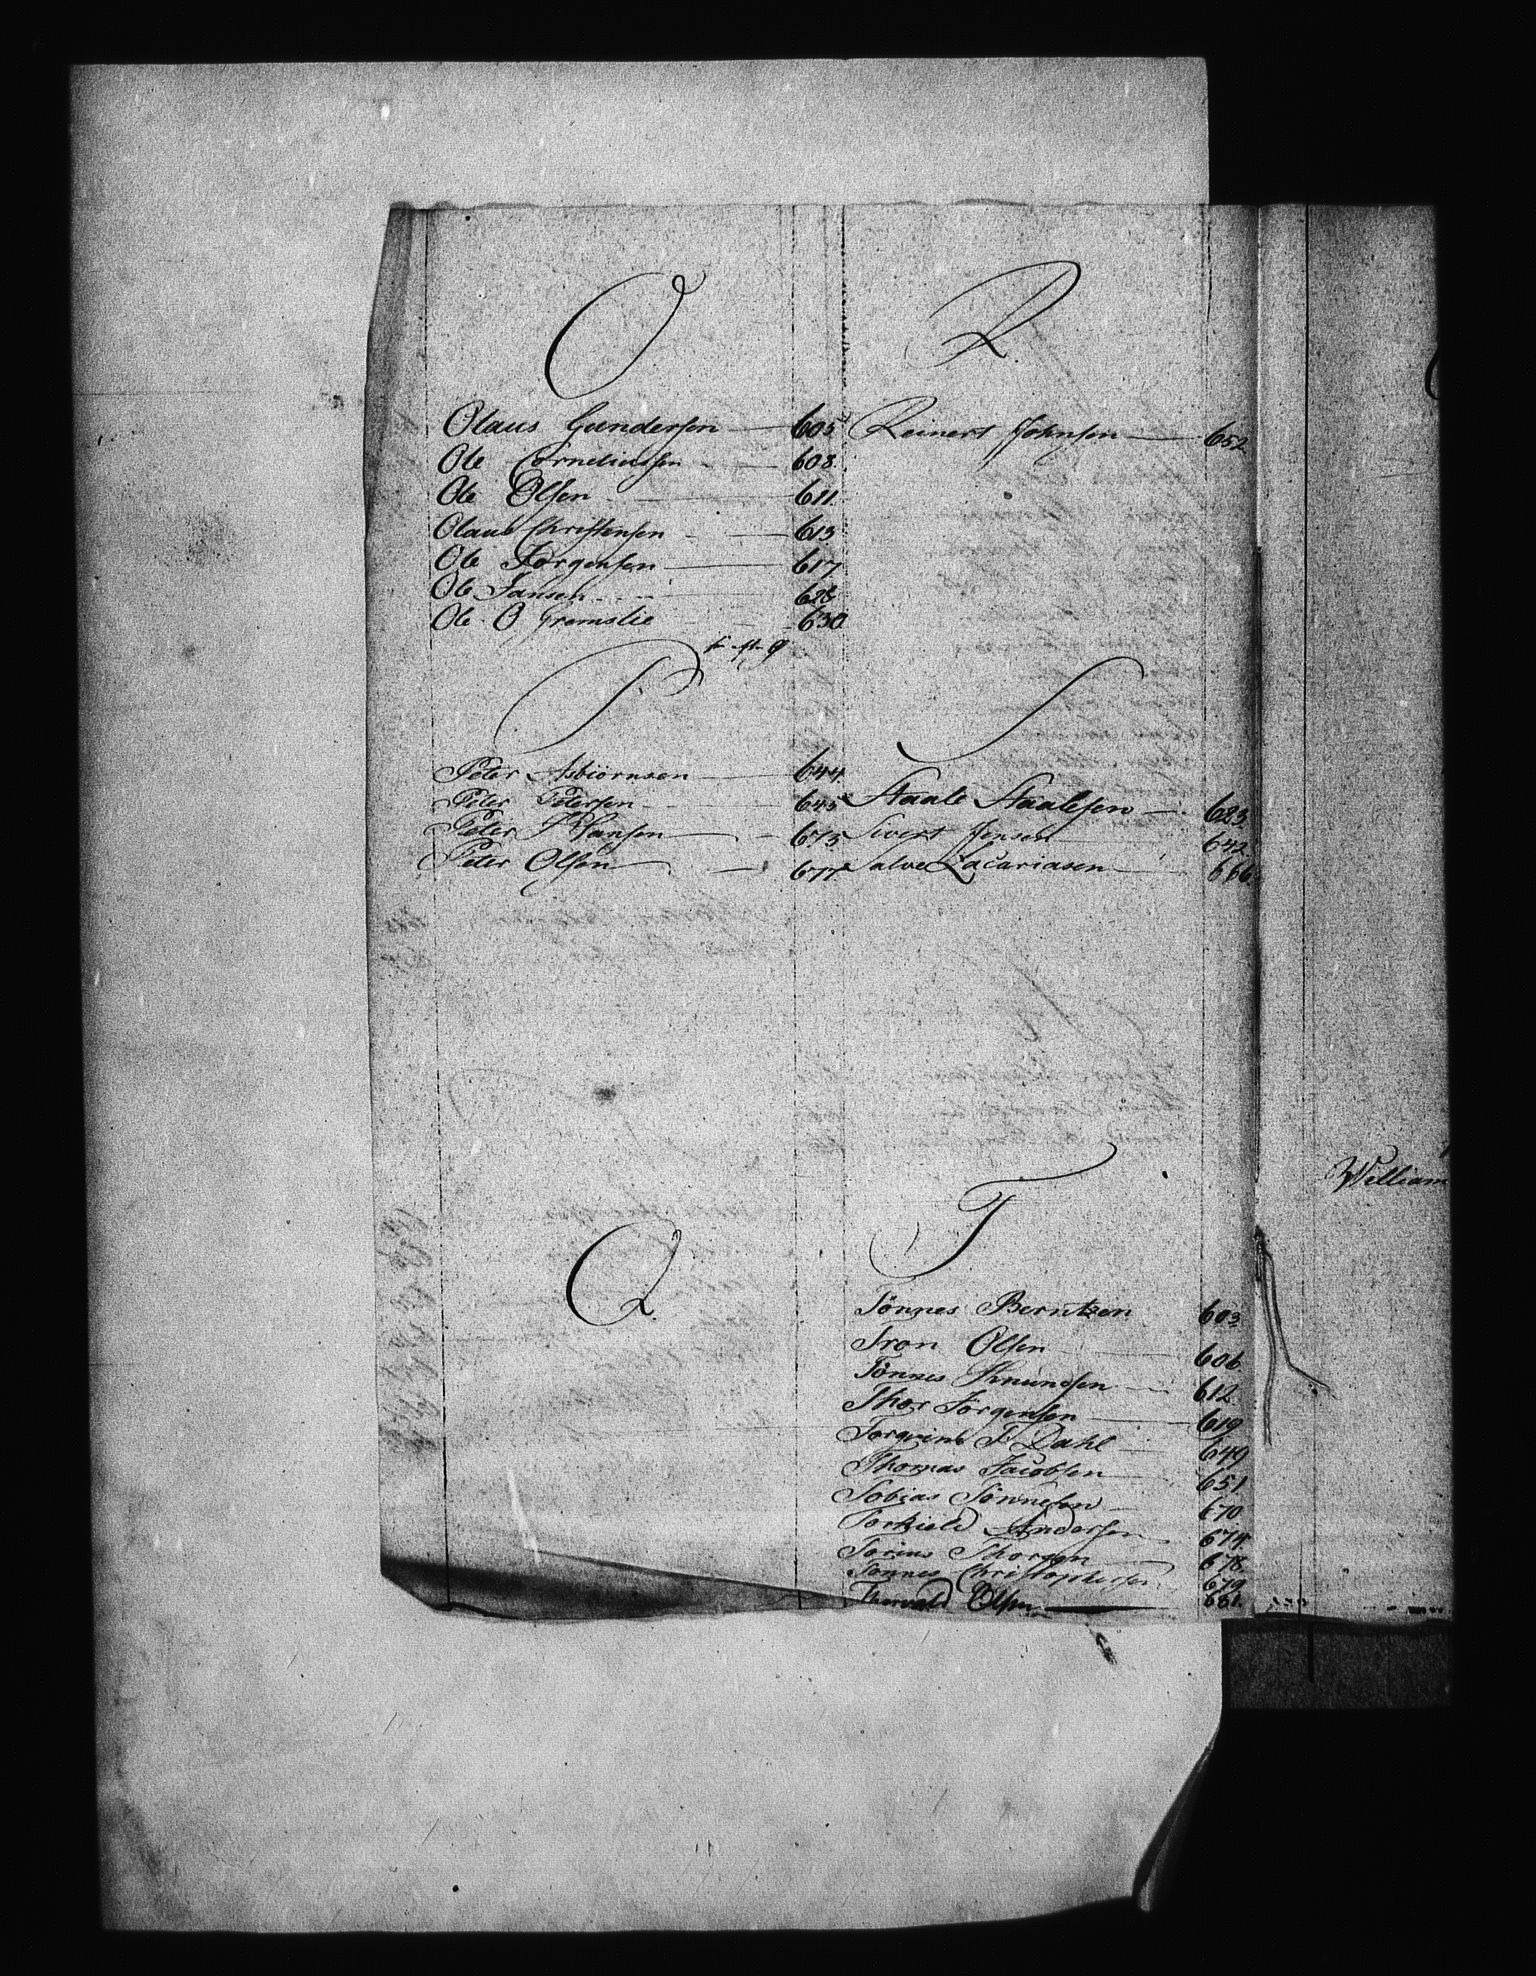 O
Olaus Gundersen 605
Ole Corneliussen 608
Ole Olsen 611
Olaus Christensen 613
Ole Jörgensen 617
Ole Jansen 628
Ole O Gromslie 630
P.
Peter Asbiörnsen 644
Peter Petersen 645
Peter J Hansen 673
Peter Olsen 677
Q.
R.
Reinert Johnsen 652
S
Staale Staalesen 623
Sivert Jensen 642
Salve Zacariasen 666
T
Tönnes Berntzen 603
Tron Olsen 606
Tönnes Knundsen 612
Thor Jörgensen 619
Torgrim T Dahl 649
Thomas Jacobsen 651
Tobias Tönnesen 670
Torkield Andersen 674
Torius Thorsen 678
Tonnes Christophersen 679
Thorvald Olsen 681
William